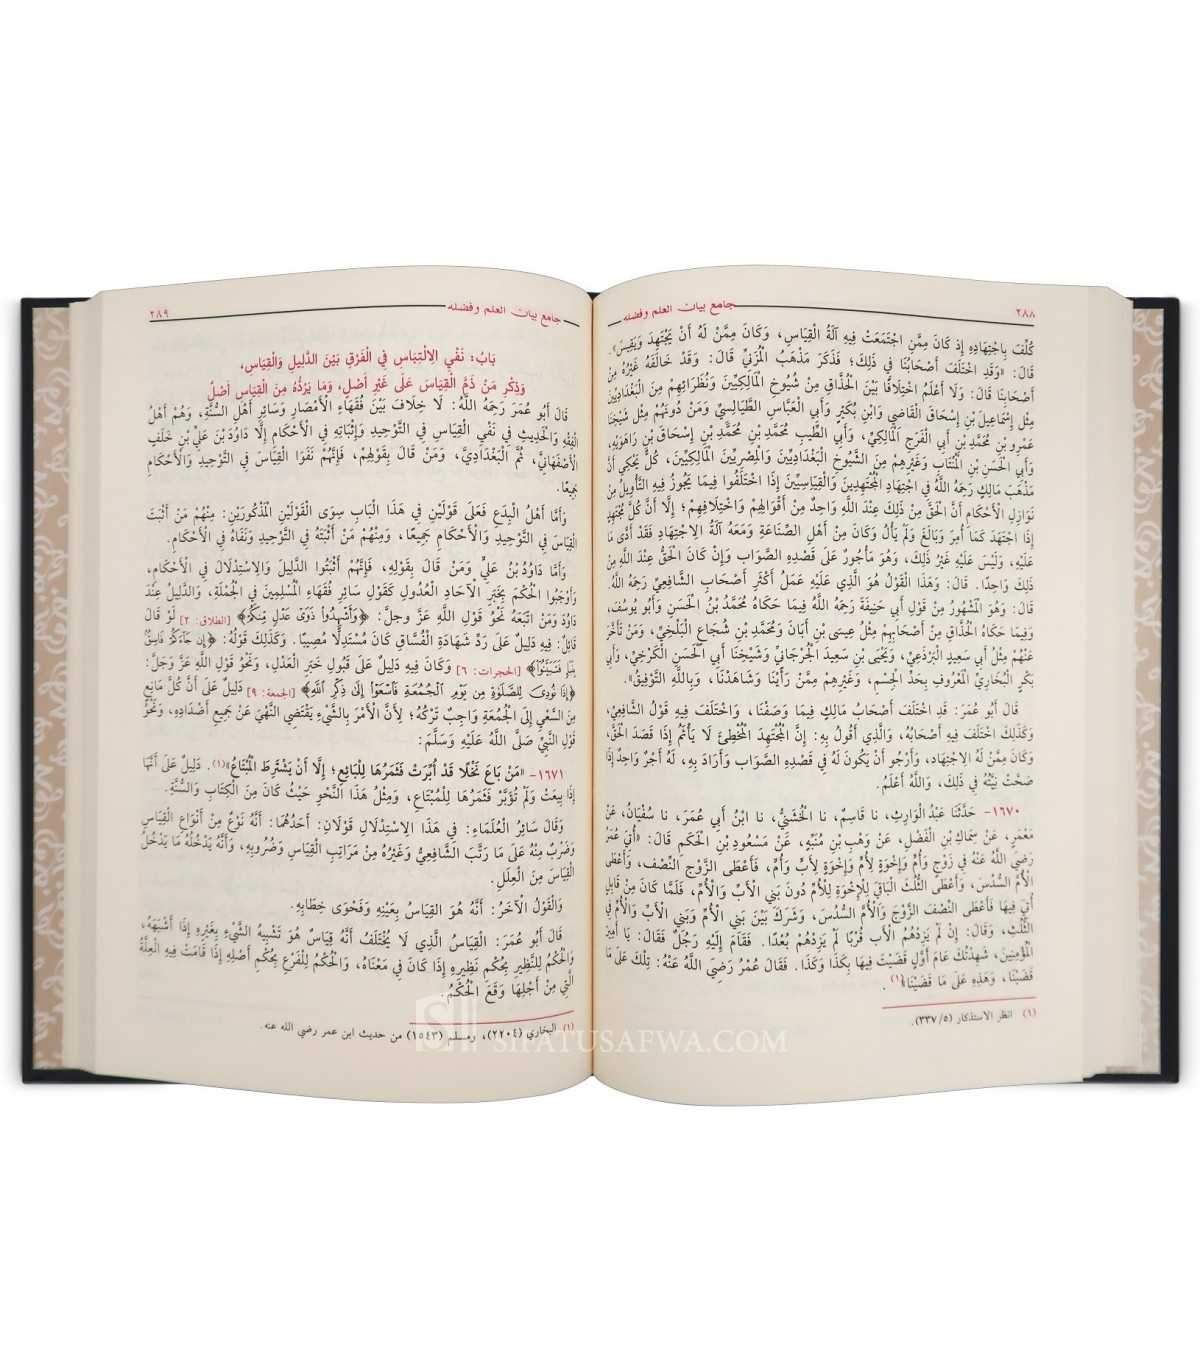 ٢٨٨
جامع بيان العلم وفضله
كُلِّفَ بِاجْتِهَادِهِ إِذْ كَانَ مِمَّنِ اجْتَمَعَتْ فِيهِ آلَةُ الْقِيَاسِ، وَكَانَ مِمَّنْ لَهُ أَنْ يَجْتَهِدَ وَيَقِيسَ».
قَالَ: «وَقَدِ اخْتَلَفَ أَصْحَابُنَا فِي ذَلِكَ؛ فَذَكَرَ مَذْهَبُ الْمُزَنِيِّ قَالَ: وَقَدْ خَالَفَهُ غَيْرُهُ مِنْ
أَصْحَابِنَا قَالَ: وَلَا أَعْلَمُ اخْتِلَافًا بَيْنَ الْحُذَّاقِ مِنْ شُيُوخِ الْمَالِكِيِّينَ وَنُظَرَائِهِمْ مِنَ الْبَغْدَادِيِّينَ
مِثْلِ إِسْمَاعِيلَ بْنِ إِسْحَاقَ الْقَاضِي وَابْنِ بُكَيْرٍ وَأَبِي الْعَبَّاسِ الطَّيَالِسِيِّ وَمَنْ دُونَهُمْ مِثْلِ شَيْخِنَا
عَمْرِو بْنِ مُحَمَّدِ بْنِ أَبِي الْفَرَجِ الْمَالِكِيِّ، وَأَبِي الطَّيِّبِ مُحَمَّدِ بْنِ مُحَمَّدِ بْنِ إِسْحَاقَ بْنِ رَاهَوَيْهِ،
وَأَبِي الْحَسَنِ بْنِ الْمُنْتَابِ وَغَيْرِهِمْ مِنَ الشُّيُوخِ الْبَغْدَادِيِّينَ وَالْمِصْرِيِّينَ الْمَالِكِيِّينَ، كُلٌّ يَحْكِي أَنَّ
مَذْهَبَ مَالِكٍ رَحِمَهُ اللَّهُ فِي اجْتِهَادِ الْمُجْتَهِدِينَ وَالْقِيَاسِيِّينَ إِذَا اخْتَلَفُوا فِيمَا يَجُوزُ فِيهِ التَّأْوِيلُ مِنْ
نَوَازِلِ الْأَحْكَامِ أَنَّ الْحَقَّ مِنْ ذَلِكَ عِنْدَ اللَّهِ وَاحِدٌ مِنْ أَقْوَالِهِمْ وَاخْتِلَافِهِمْ؛ إِلَّا أَنَّ كُلَّ مُجْتَهِدٍ
إِذَا اجْتَهَدَ كَمَا أُمِرَ وَبَالَغَ وَلَمْ يَأْلُ وَكَانَ مِنْ أَهْلِ الصِّنَاعَةِ وَمَعَهُ آلَةُ الِاجْتِهَادِ فَقَدْ أَدَّى مَا
عَلَيْهِ، وَلَيْسَ عَلَيْهِ غَيْرُ ذَلِكَ، وَهُوَ مَأْجُورٌ عَلَى قَصْدِهِ الصَّوَابَ وَإِنْ كَانَ الْحَقُّ عِنْدَ اللَّهِ مِنْ
ذَلِكَ وَاحِدًا. قَالَ: وَهَذَا الْقَوْلُ هُوَ الَّذِي عَلَيْهِ عَمَلُ أَكْثَرِ أَصْحَابِ الشَّافِعِيِّ رَحِمَهُ اللَّهُ.
قَالَ: وَهُوَ الْمَشْهُورُ مِنْ قَوْلِ أَبِي حَنِيفَةَ رَحِمَهُ اللَّهُ فِيمَا حَكَاهُ مُحَمَّدُ بْنُ الْحَسَنِ وَأَبُو يُوسُفَ،
وَفِيمَا حَكَاهُ الْحُذَّاقُ مِنْ أَصْحَابِهِمْ مِثْلُ عِيسَى بْنِ أَبَانَ وَمُحَمَّدِ بْنِ شُجَاعٍ الْبَلْخِيِّ، وَمَنْ تَأَخَّرَ
عَنْهُمْ مِثْلُ أَبِي سَعِيدٍ الْبَرْذَعِيِّ، وَيَحْيَى بْنِ سَعِيدٍ الْجُرْجَانِيِّ وَشَيْخِنَا أَبِي الْحَسَنِ الْكَرْخِيِّ، وَأَبِي
بَكْرٍ الْبُخَارِيِّ الْمَعْرُوفِ بِحَدِّ الْجِسْمِ، وَغَيْرِهِمْ مِمَّنْ رَأَيْنَا وَشَاهَدْنَا، وَبِاللَّهِ التَّوْفِيقُ».
قَالَ أَبُو عُمَرَ: قَدِ اخْتَلَفَ أَصْحَابُ مَالِكٍ فِيمَا وَصَفْنَا، وَاخْتَلَفَ فِيهِ قَوْلُ الشَّافِعِيِّ،
وَكَذَلِكَ اخْتَلَفَ فِيهِ أَصْحَابُهُ، وَالَّذِي أَقُولُ بِهِ: إِنَّ الْمُجْتَهِدَ الْمُخْطِئَ لَا يَأْثَمُ إِذَا قَصَدَ الْحَقَّ،
وَكَانَ مِمَّنْ لَهُ الِاجْتِهَادِ، وَأَرْجُو أَنْ يَكُونَ لَهُ فِي قَصْدِهِ الصَّوَابَ وَأَرَادَ بِهِ، لَهُ أَجْرٌ وَاحِدٌ إِذَا
صَحَّتْ نِيَّتُهُ فِي ذَلِكَ، وَاللَّهُ أَعْلَمُ.
١٦٧٠- حَدَّثَنَا عَبْدُ الْوَارِثِ، نا قَاسِمٌ، نا الْخُشَنِيُّ، نا ابْنُ أَبِي عُمَرَ، نا سُفْيَانُ، عَنْ
مَعْمَرٍ، عَنْ سِمَاكِ بْنِ الْفَضْلِ، عَنْ وَهْبِ بْنِ مُنَبِّهٍ، عَنْ مَسْعُودِ بْنِ الْحَكَمِ قَالَ: «أُتِيَ عُمَرُ
رَضِيَ اللَّهُ عَنْهُ فِي زَوْجٍ وَأُمٍّ وَإِخْوَةٍ لِأُمٍّ وَإِخْوَةٍ لِأَبٍ وَأُمٍّ، فَأَعْطَى الزَّوْجَ النِّصْفَ، وَأَعْطَى
الْأُمَّ السُّدُسَ، وَأَعْطَى الثُّلُثَ الْبَاقِيَ لِلْإِخْوَةِ لِلْأُمِّ دُونَ بَنِي الْأَبِ وَالْأُمِّ، فَلَمَّا كَانَ مِنْ قَابِلٍ
أُتِيَ فِيهَا فَأَعْطَى النِّصْفَ الزَّوْجَ وَالْأُمَّ السُّدُسَ، وَشَرَّكَ بَيْنَ بَنِي الْأُمِّ وَبَنِي الْأَبِ وَالْأُمِّ فِي
الثُّلُثِ، وَقَالَ: إِنْ لَمْ يَزِدْهُمُ الْأَبُ قُرْبًا لَمْ يَزِدْهُمْ بُعْدًا. فَقَامَ إِلَيْهِ رَجُلٌ فَقَالَ: يَا أَمِيرَ
الْمُؤْمِنِينَ، شَهِدْتُكَ عَامَ أَوَّلٍ قَضَيْتَ فِيهَا بِكَذَا وَكَذَا. فَقَالَ عُمَرُ رَضِيَ اللَّهُ عَنْهُ: تِلْكَ عَلَى مَا
قَضَيْنَا، وَهَذِهِ عَلَى مَا قَضَيْنَا»(١).
(١) انظر الاستذكار (٥/ ٣٣٧).
جامع بيان العلم وفضله
٢٨٩
بَابُ: نَفْيِ الِالْتِبَاسِ فِي الْفَرْقِ بَيْنَ الدَّلِيلِ وَالْقِيَاسِ،
وَذِكْرِ مَنْ ذَمَّ الْقِيَاسَ عَلَى غَيْرِ أَصْلٍ، وَمَا يَرُدُّهُ مِنَ الْقِيَاسِ أَصْلٌ
قَالَ أَبُو عُمَرَ رَحِمَهُ اللَّهُ: لَا خِلَافَ بَيْنَ فُقَهَاءِ الْأَمْصَارِ وَسَائِرِ أَهْلِ السُّنَّةِ، وَهُمْ أَهْلُ
الْفِقْهِ وَالْحَدِيثِ فِي نَفْيِ الْقِيَاسِ فِي التَّوْحِيدِ وَإِثْبَاتِهِ فِي الْأَحْكَامِ إِلَّا دَاوُدَ بْنَ عَلِيِّ بْنِ خَلَفٍ
الْأَصْفَهَانِيَّ، ثُمَّ الْبَغْدَادِيَّ، وَمَنْ قَالَ بِقَوْلِهِمْ، فَإِنَّهُمْ نَفَوُا الْقِيَاسَ فِي التَّوْحِيدِ وَالْأَحْكَامِ
جَمِيعًا.
وَأَمَّا أَهْلُ الْبِدَعِ فَعَلَى قَوْلَيْنِ فِي هَذَا الْبَابِ سِوَى الْقَوْلَيْنِ الْمَذْكُورَيْنِ: مِنْهُمْ مَنْ أَثْبَتَ
الْقِيَاسَ فِي التَّوْحِيدِ وَالْأَحْكَامِ جَمِيعًا، وَمِنْهُمْ مَنْ أَثْبَتَهُ فِي التَّوْحِيدِ وَنَفَاهُ فِي الْأَحْكَامِ.
وَأَمَّا دَاوُدُ بْنُ عَلِيٍّ وَمَنْ قَالَ بِقَوْلِهِ، فَإِنَّهُمْ أَثْبَتُوا الدَّلِيلَ وَالِاسْتِدْلَالَ فِي الْأَحْكَامِ،
وَأَوْجَبُوا الْحُكْمَ بِخَبَرِ الْآحَادِ الْعُدُولِ كَقَوْلِ سَائِرِ فُقَهَاءِ الْمُسْلِمِينَ فِي الْجُمْلَةِ، وَالدَّلِيلُ عِنْدَ
دَاوُدَ وَمَنْ اتَّبَعَهُ نَحْوُ قَوْلِ اللَّهِ عَزَّ وَجَلَّ: ﴿وَأَشْهِدُوا ذَوَىْ عَدْلٍ مِنكُمْ﴾ [الطلاق: ٢] لَوْ قَالَ
قَائِلٌ: فِيهِ دَلِيلٌ عَلَى رَدِّ شَهَادَةِ الْفُسَّاقِ كَانَ مُسْتَدِلًّا مُصِيبًا. وَكَذَلِكَ قَوْلُهُ: ﴿إِن جَآءَكُمْ فَاسِقٌ
بِنَبَإٍ فَتَبَيَّنُوٓاْ﴾ [الحجرات: ٦] وَكَانَ فِيهِ دَلِيلٌ عَلَى قَبُولِ خَبَرِ الْعَدْلِ، وَنَحْوُ قَوْلِ اللَّهِ عَزَّ وَجَلَّ:
﴿إِذَا نُودِىَ لِلصَّلَوٰةِ مِن يَوْمِ ٱلْجُمُعَةِ فَٱسْعَوْاْ إِلَىٰ ذِكْرِ ٱللَّهِ﴾ [الجمعة: ٩] دَلِيلٌ عَلَى أَنَّ كُلَّ مَانِعٍ
مِنَ السَّعْيِ إِلَى الْجُمُعَةِ وَاجِبٌ تَرْكُهُ؛ لِأَنَّ الْأَمْرَ بِالشَّيْءِ يَقْتَضِي النَّهْيَ عَنْ جَمِيعِ أَضْدَادِهِ، وَنَحْوُ
قَوْلِ النَّبِيِّ صَلَّى اللَّهُ عَلَيْهِ وَسَلَّمَ:
١٦٧١- «مَنْ بَاعَ نَخْلًا قَدْ أُبِّرَتْ فَثَمَرُهَا لِلْبَائِعِ؛ إِلَّا أَنْ يَشْتَرِطَ الْمُبْتَاعُ»(١). دَلِيلٌ عَلَى أَنَّهَا
إِذَا بِيعَتْ وَلَمْ تُؤَبَّرْ فَثَمَرُهَا لِلْمُبْتَاعِ، وَمِثْلُ هَذَا النَّحْوِ حَيْثُ كَانَ مِنَ الْكِتَابِ وَالسُّنَّةِ.
وَقَالَ سَائِرُ الْعُلَمَاءِ: فِي هَذَا الِاسْتِدْلَالِ قَوْلَانِ: أَحَدُهُمَا: أَنَّهُ نَوْعٌ مِنْ أَنْوَاعِ الْقِيَاسِ
وَضَرْبٌ مِنْهُ عَلَى مَا رَتَّبَ الشَّافِعِيُّ وَغَيْرُهُ مِنْ مَرَاتِبِ الْقِيَاسِ وَضُرُوبِهِ، وَأَنَّهُ يَدْخُلُهُ مَا يَدْخُلُ
الْقِيَاسَ مِنَ الْعِلَلِ.
وَالْقَوْلُ الْآخَرُ: أَنَّهُ هُوَ الْقِيَاسُ بِعَيْنِهِ وَفَحْوَى خِطَابِهِ.
قَالَ أَبُو عُمَرَ: الْقِيَاسُ الَّذِي لَا يُخْتَلَفُ أَنَّهُ قِيَاسٌ هُوَ تَشْبِيهُ الشَّيْءِ بِغَيْرِهِ إِذَا أَشْبَهَهُ،
وَالْحُكْمُ لِلنَّظِيرِ بِحُكْمِ نَظِيرِهِ إِذَا كَانَ فِي مَعْنَاهُ، وَالْحُكْمُ لِلْفَرْعِ بِحُكْمِ أَصْلِهِ إِذَا قَامَتْ فِيهِ الْعِلَّةُ
الَّتِي مِنْ أَجْلِهَا وَقَعَ الْحُكْمُ.
(١) البخاري (٢٢٠٤)، ومسلم (١٥٤٣) من حديث ابن عمر رضي الله عنه.
SIFATUSAFWA.COM